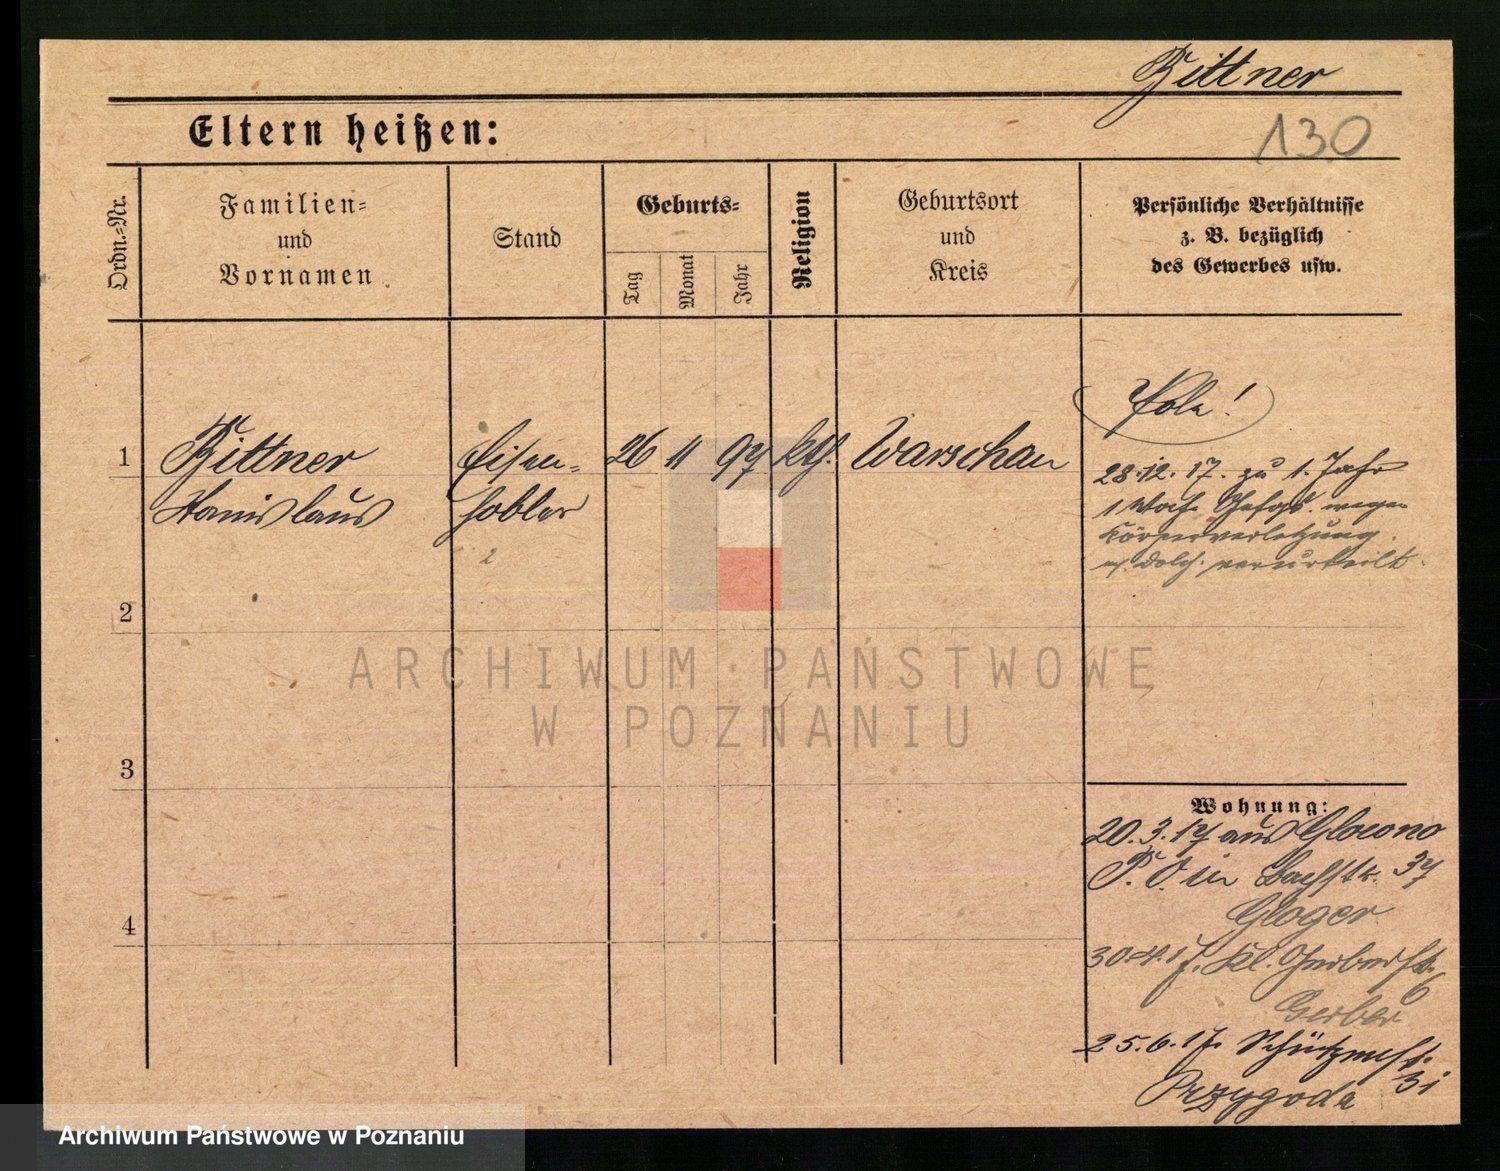 Bittner
130
Eltern heißen:
Ordn.-Nr.
Familien-
und
Vornamen
Stand
Geburts-
Tag
Monat
Jahr
Religion
Geburtsort
und
Kreis
Persönliche Verhältnisse
z. B. bezüglich
des Gewerbes usw.
Pole!
1
Bittner
Stanislaus
Eisen-
hobler
26 11 97 kth. Warschau
28.12.17. zu 1. Jahr
1 Woche Gefgs. wegen
Körperverletzung
verurteilt.
2
3
4
ARCHIWUM PAŃSTWOWE
W POZNANIU
Wohnung:
20.3.17 aus Glowno
P. O. in Bachstr. 37
Gloger
30.4.17. Kl. Gerberstr.
6
Gerber
25.6.17. Schützenstr.
31
Przygoda
Archiwum Państwowe w Poznaniu